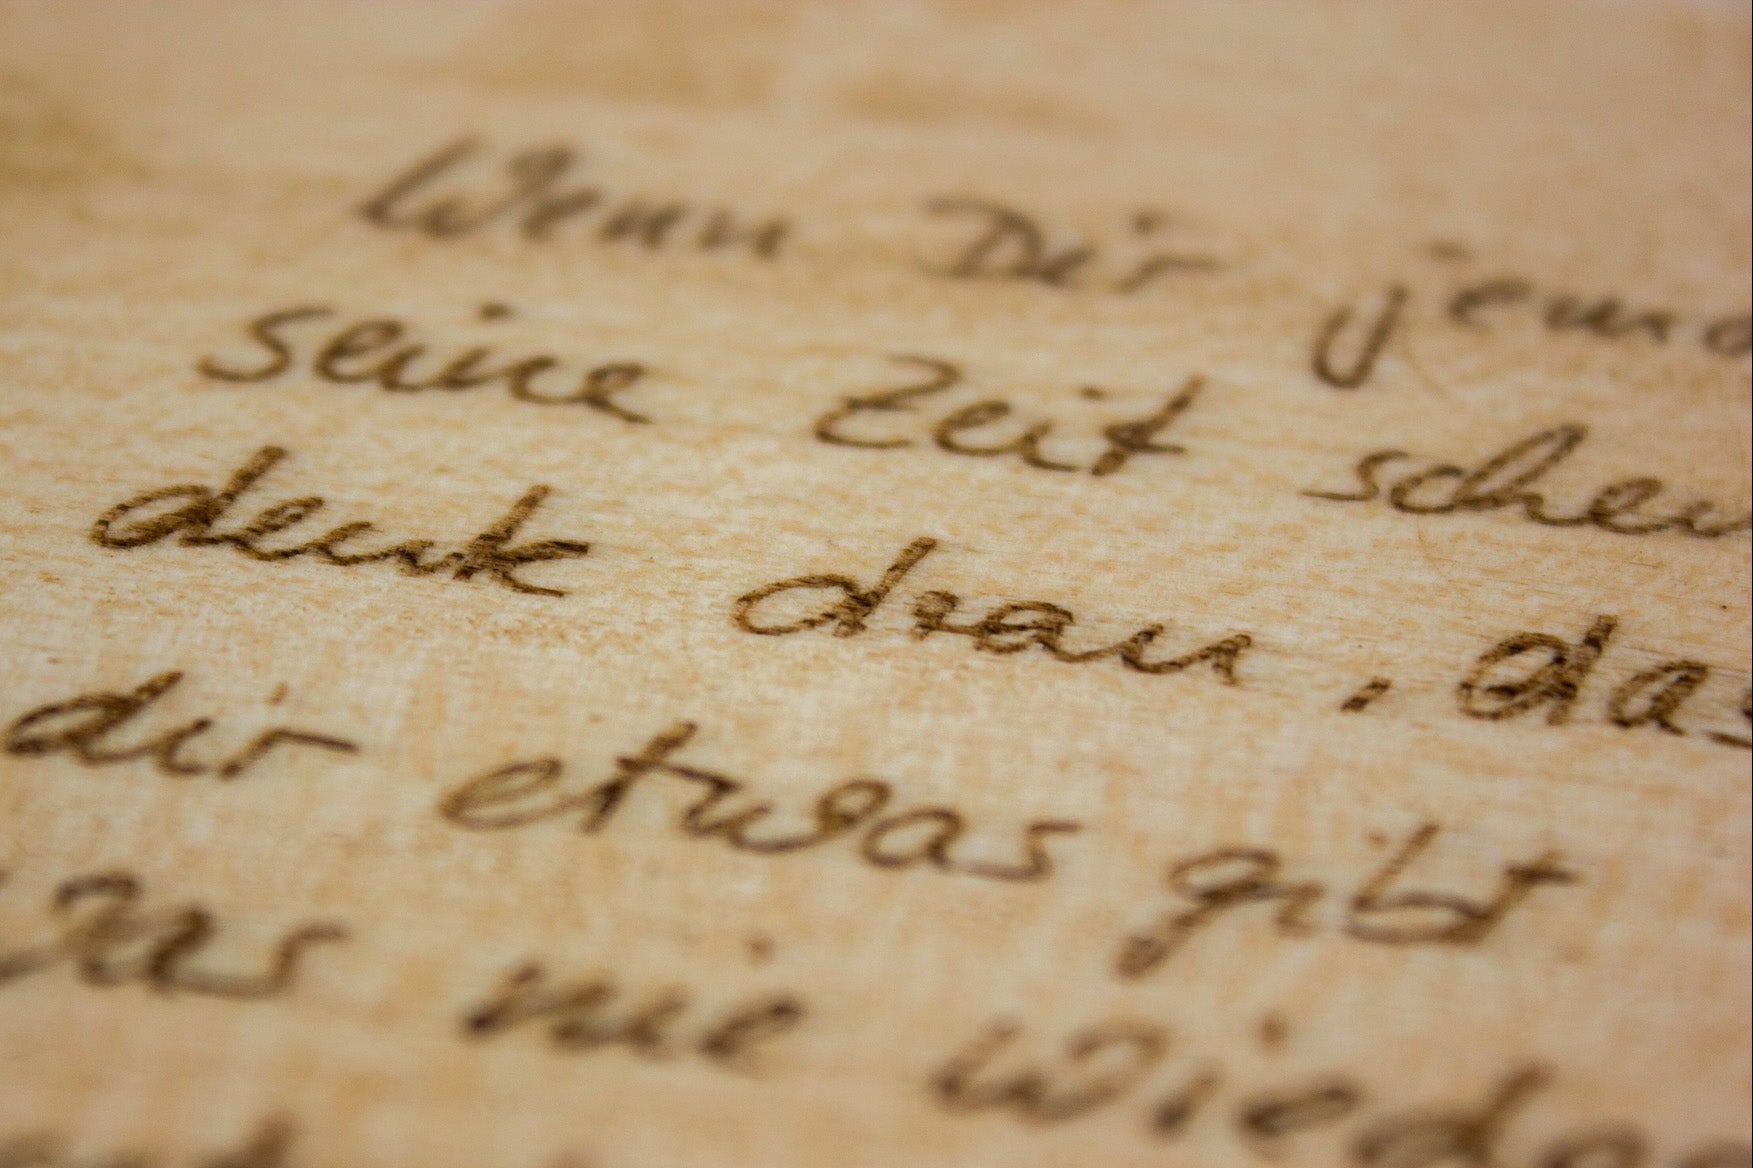 Wenn Dir jemand
seine Zeit schen
denk dran, das
dir etwas gibt
was nie wieder